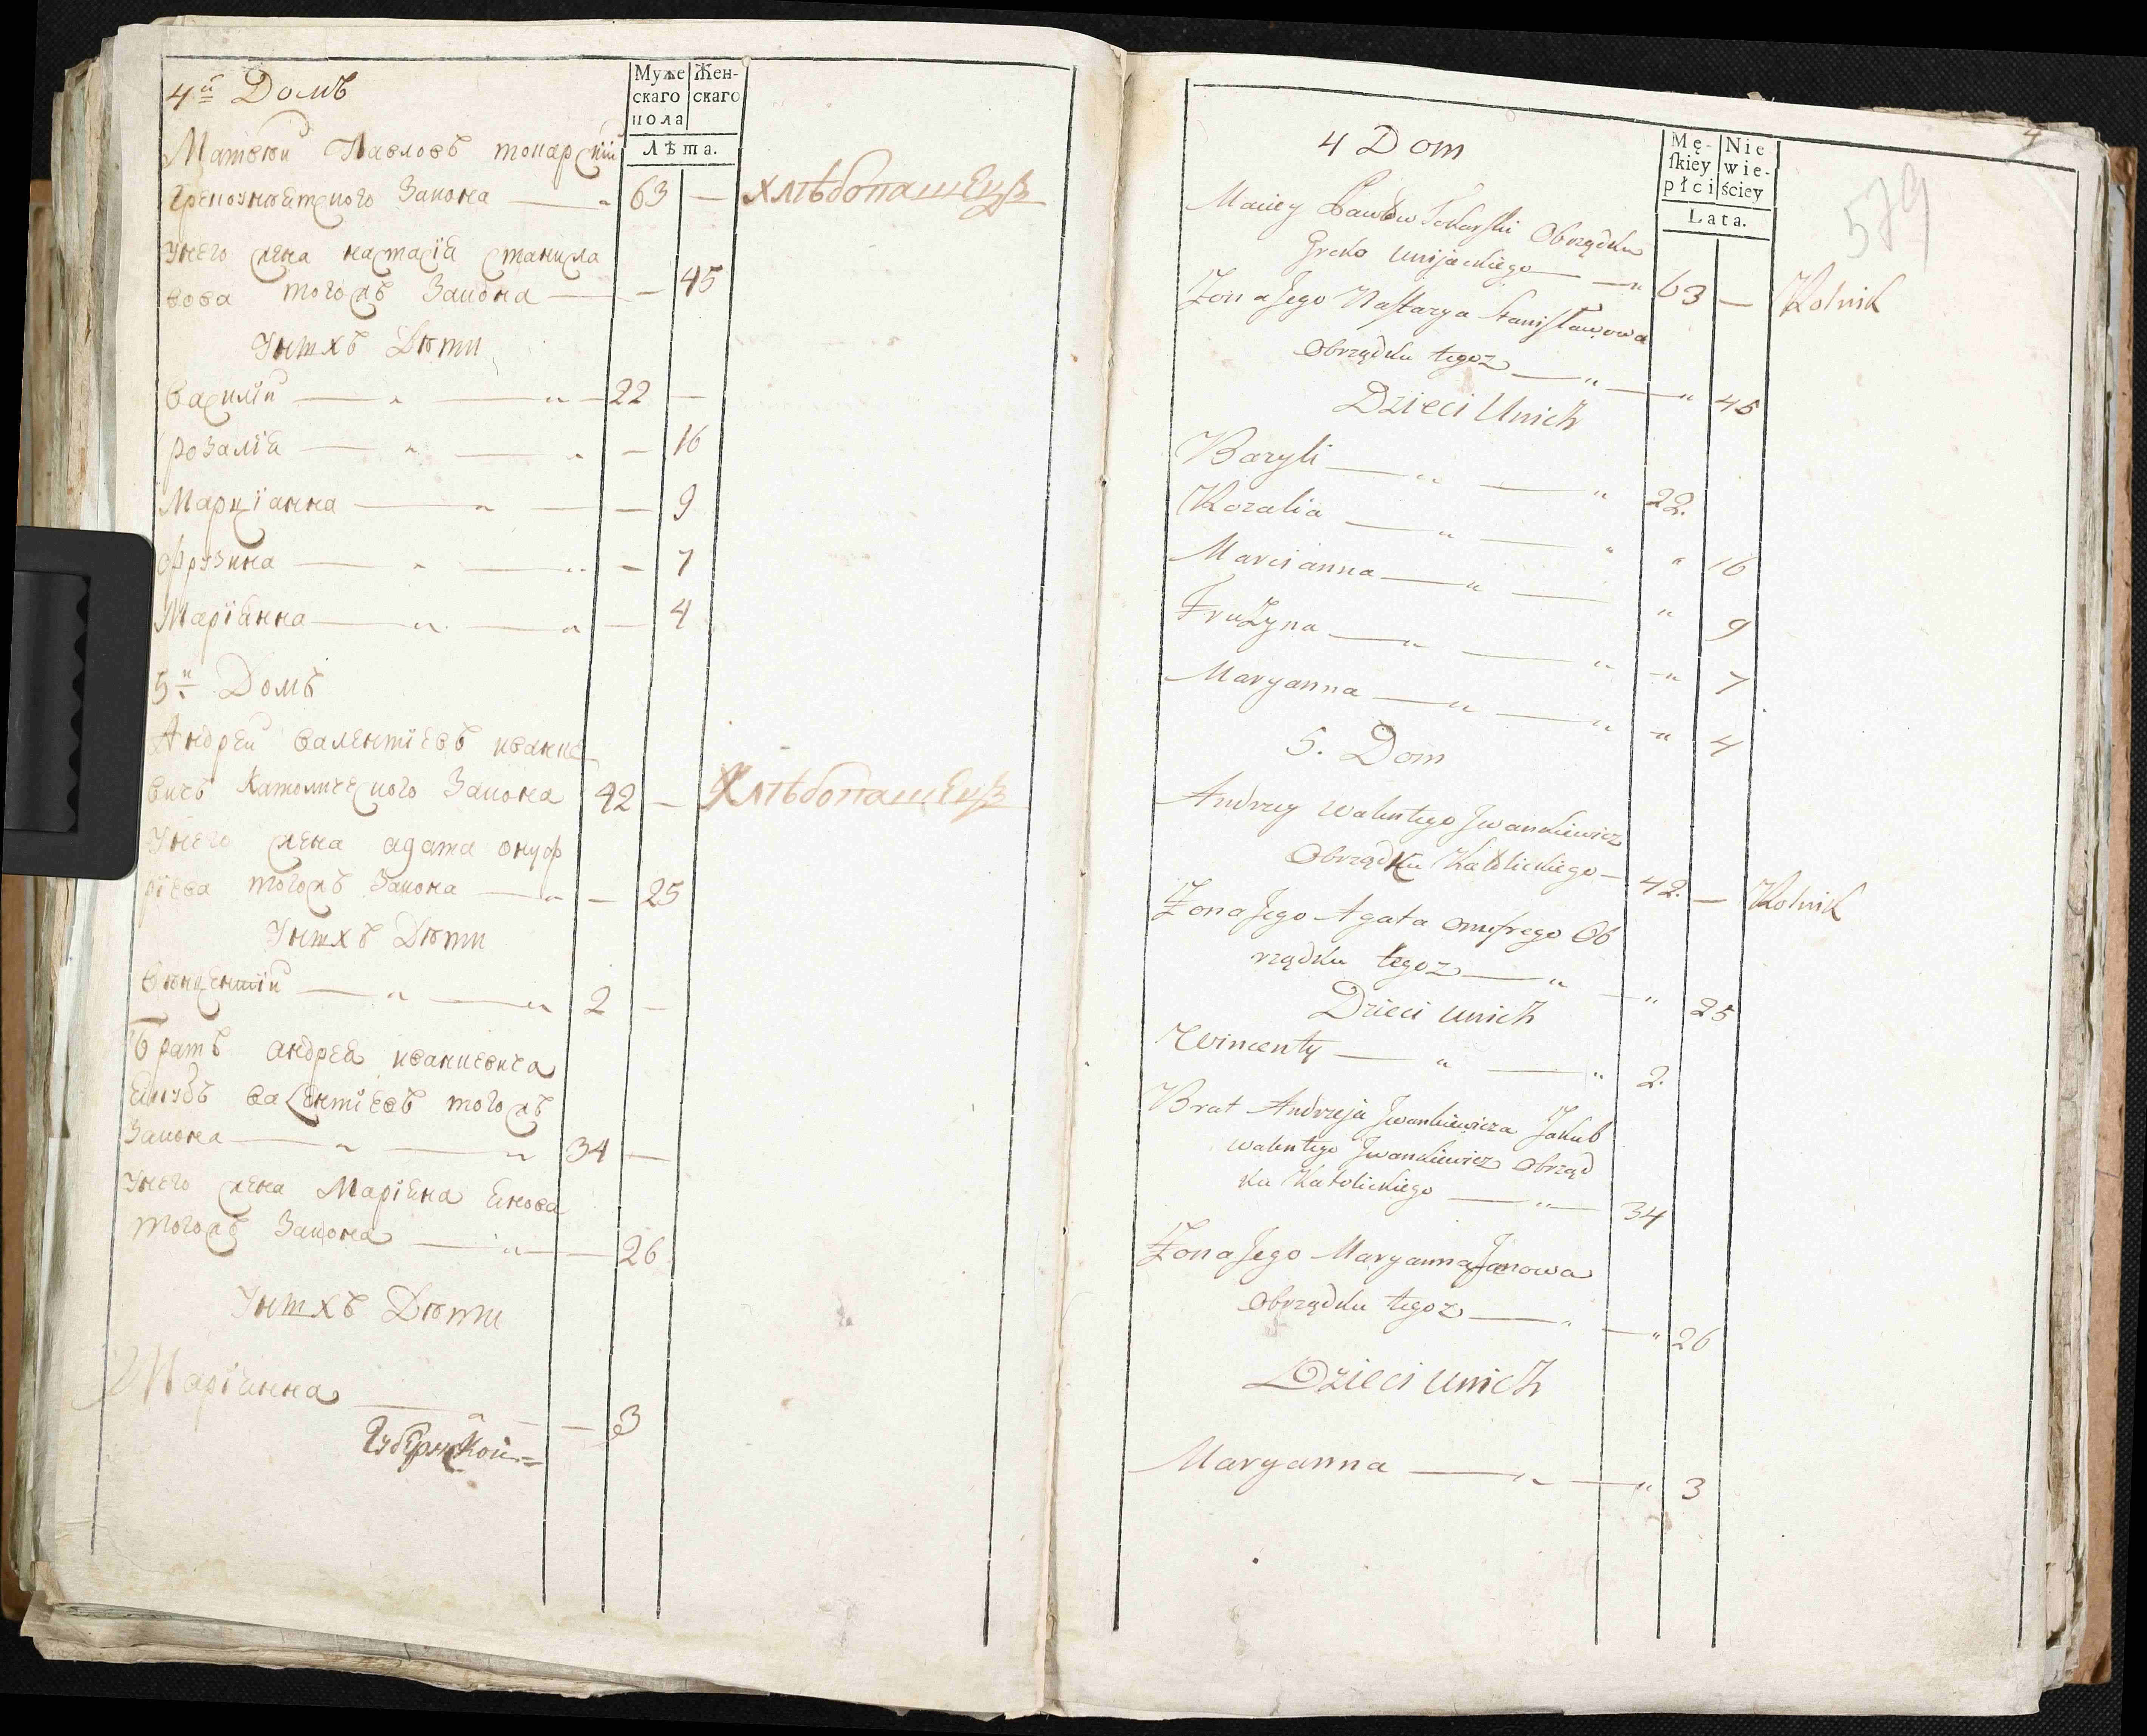 4й Домъ
Муже Жен-
скаго скаго
пола
Лѣта.
Матвѣй Павловъ токарскій
Грекоунѣятского Закона — 63 — Хлѣбопашецъ
Унего жена настасія станисла
вова тогожъ Закона — — 45
Унихъ Дѣти
василій — 22 —
розалія — — 16
Марціанна — — 9
фрузина — — 7
Маріянна — — 4
5й Домъ
Андрей валентіевъ иванке
вичъ Католического Закона 42 — Хлѣбопашецъ
Унего жена агата онуф
ріева тогожъ Закона — — 25
Унихъ Дѣти
винцентій — 2 —
Братъ андрея иванкевича
якубъ валентіевъ тогожъ
Закона — 34 —
Унего жена Маріяна янова
тогожъ Закона — — 26
Унихъ Дѣти
Маріянна — — 3
Губернской
4
579
4 Dom
Mę- Nie
ſkiey wie-
płci ściey
Lata.
Maciey Pawłow Tokarſki Obrządku
Greko Unijackiego — 63 — Rolnik
Zona Jego Naſtazya Staniſławowa
Obrządku tegoz — " 45
Dzieci Unich
Bazyli — " 22.
Rozalia — " 16
Marcianna — " 9
Fruzyna — " 7
Maryanna — " 4
5. Dom
Andrzey Walentego Jwankiewicz
Obrządku Katolickiego — 42. — Rolnik
Zona Jego Agata Onufrego Ob
rządku tegoz — " 25
Dzieci Unich
Wincenty — " 2.
Brat Andrzeja Jwankiewicza Jakub
Walentego Jwankiewicz Obrząd
ku Katolickiego — " 34
Zona Jego Maryanna Janowa
Obrządku tegoz — " 26
Dzieci Unich
Maryanna — " 3